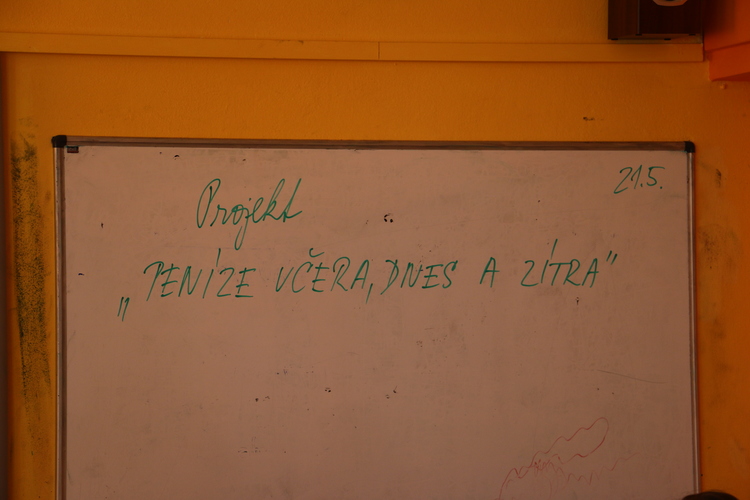 21.5.
Projekt
„PENÍZE VČERA, DNES A ZÍTRA"